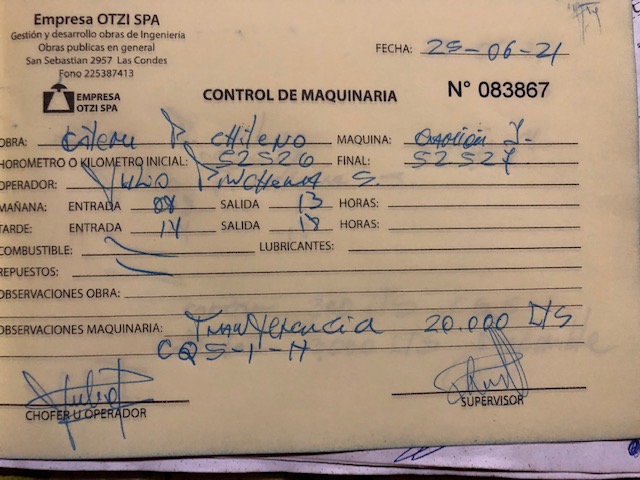 Empresa OTZI SPA
Gestión y desarrollo obras de Ingenieria
Obras publicas en general
San Sebastian 2957 Las Condes
Fono 225387413
EMPRESA
OTZI SPA
FECHA: 25-06-21
CONTROL DE MAQUINARIA
N° 083867
OBRA: chileno MAQUINA: camión
HOROMETRO O KILOMETRO INICIAL: 52526 FINAL: 52527
OPERADOR: Julio Pinochet S.
MAÑANA: ENTRADA 08 SALIDA 13 HORAS:
TARDE: ENTRADA 14 SALIDA 18 HORAS:
COMBUSTIBLE: LUBRICANTES:
REPUESTOS:
OBSERVACIONES OBRA:
OBSERVACIONES MAQUINARIA: 20.000 LTS
CHOFER U OPERADOR
SUPERVISOR